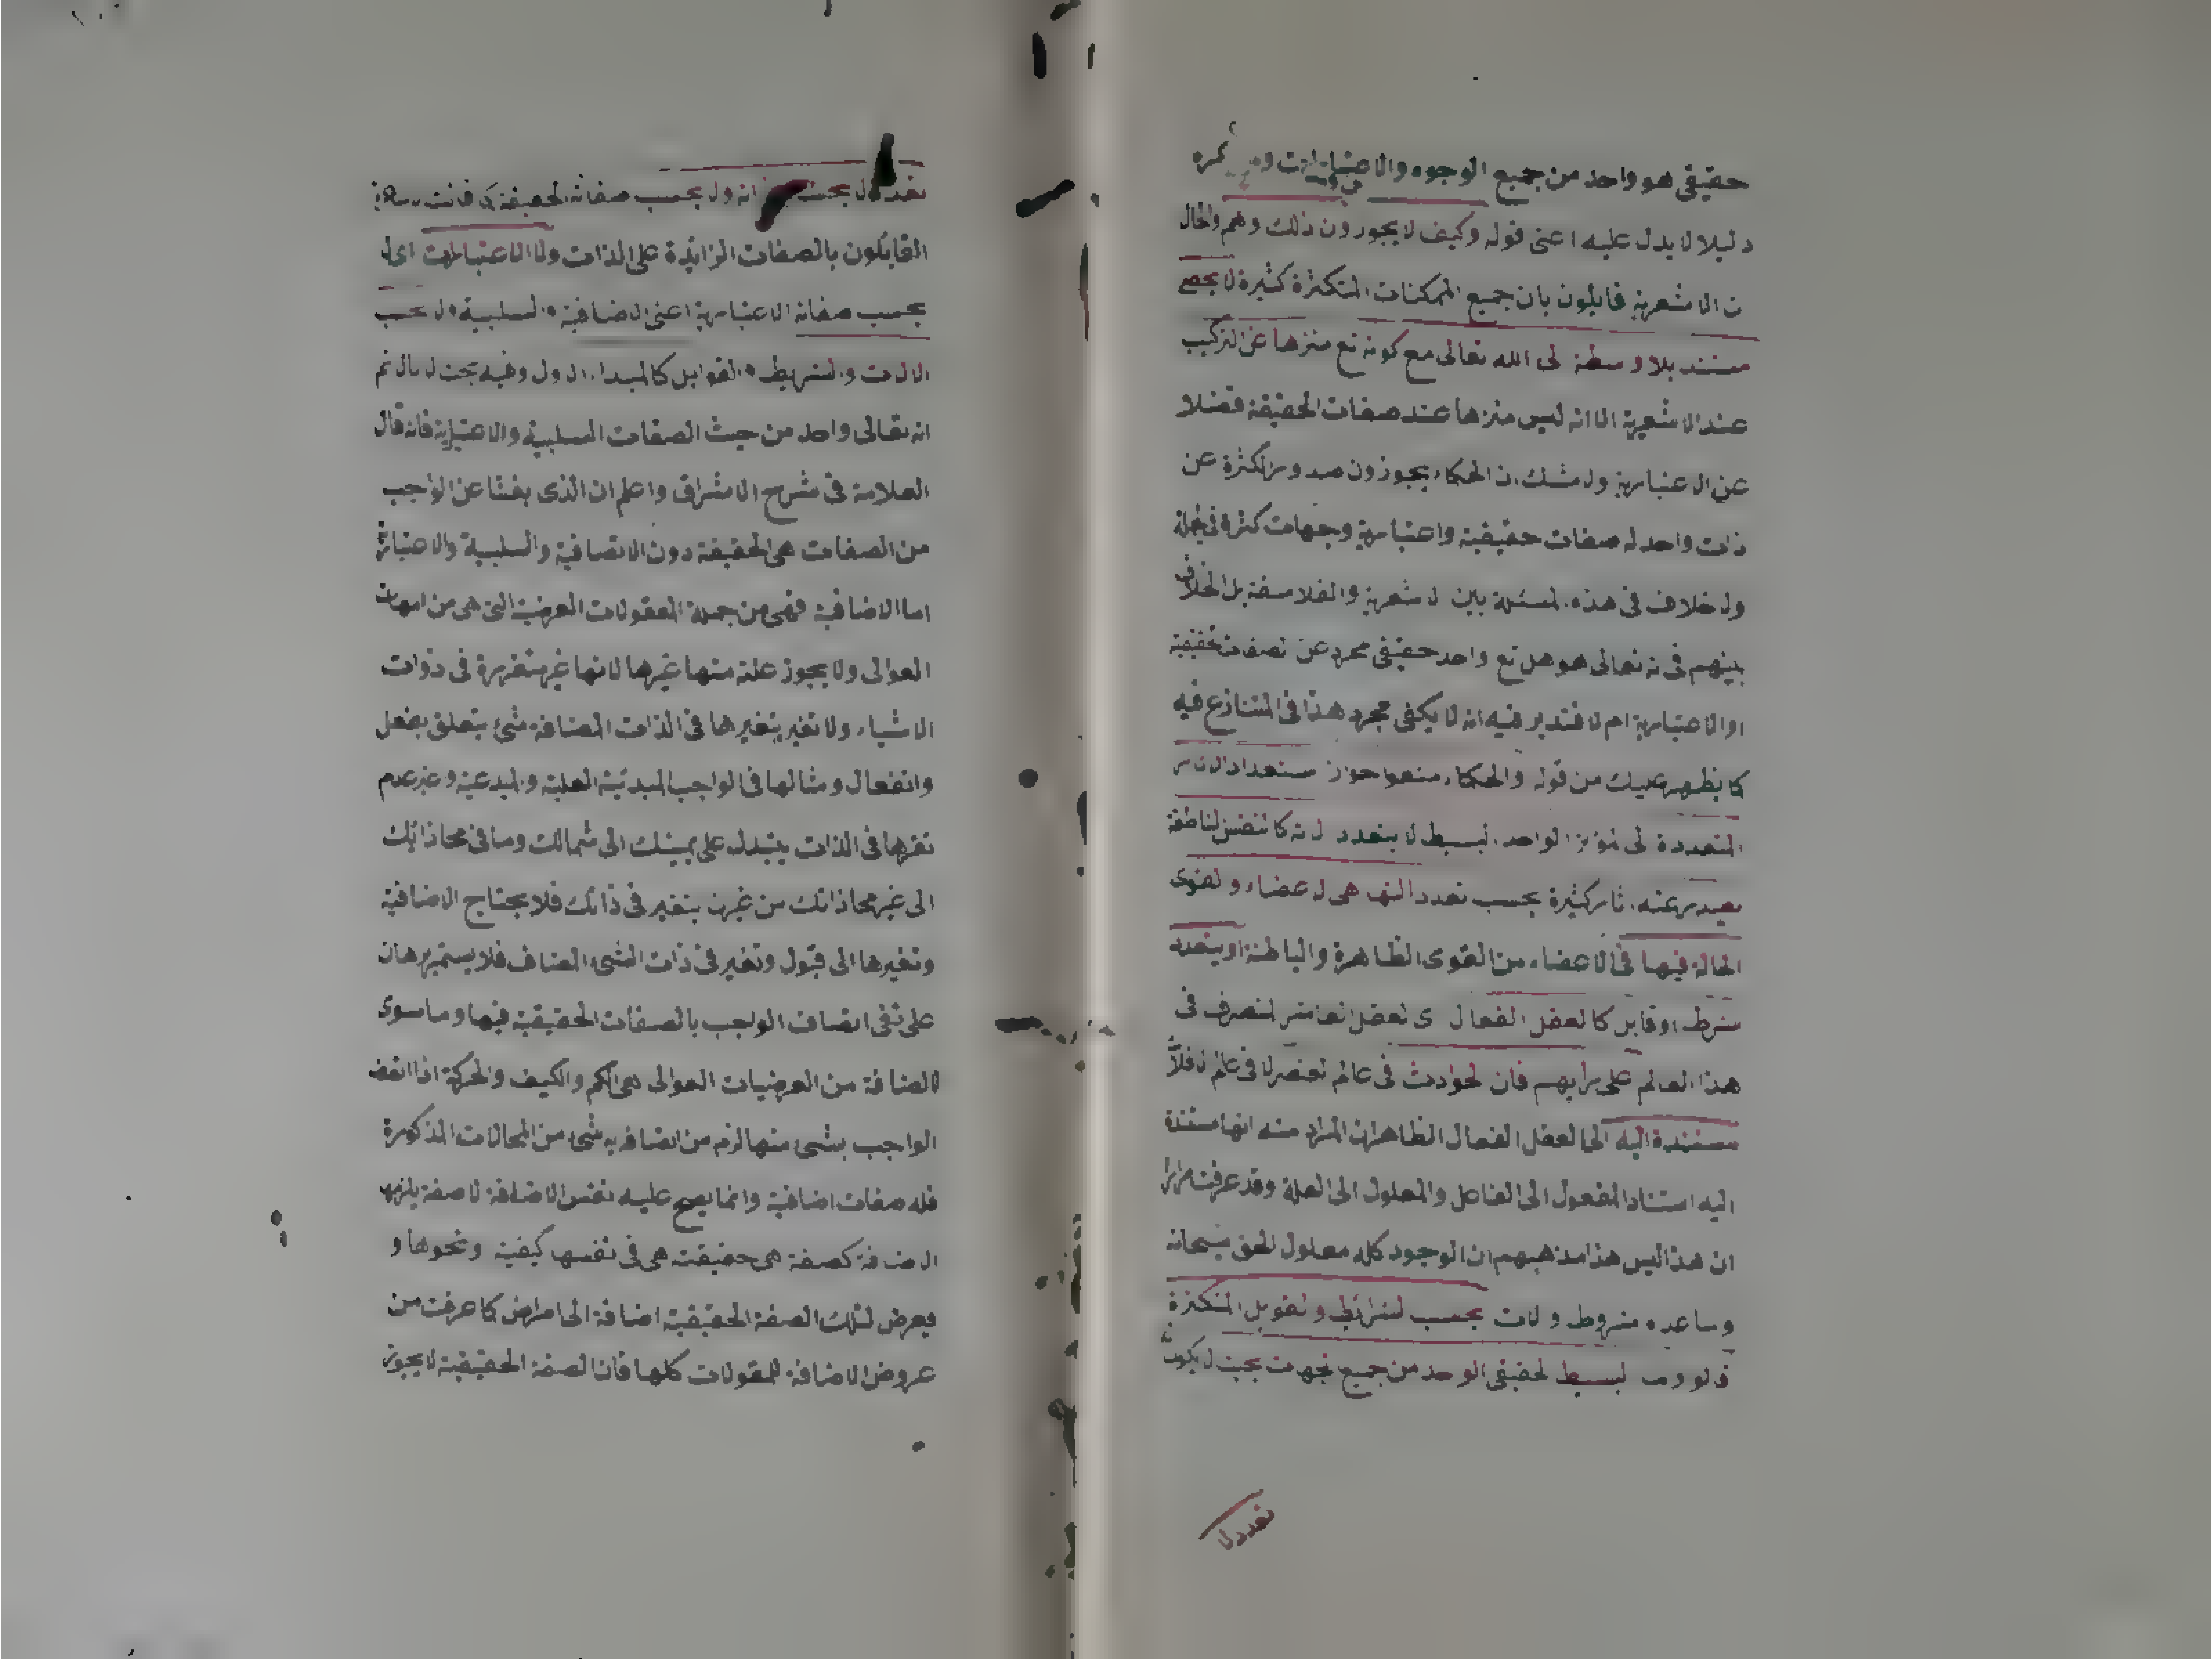 حقيقى هو واحد من جميع الوجوه والاعتبارات وما ذكره
دليلا لا يدل عليه اعنى قوله وكيف لا يجوزون ذلك وهم والحال
ان الاشعرية قايلون بان جميع الممكنات المتكثرة كثيرة لا يحصى
مستند بلا واسطة الى الله تعالى مع كونه تع منزها عن التركيب
عند الاشعرية الا انه ليس منزها عند صفات الحقيقة فضلا
عن الاعتبارية ولا شك ان الحكماء يجوزون صدور الكثرة عن
ذات واحد له صفات حقيقية واعتبارية وجهات كثرة فى الجملة
ولا خلاف فى هذه المسئلة بين الاشعرية والفلاسفة بل الخلاف
بينهم فى انه تعالى هو هل تع واحد حقيقى مجرد عن الصفات الحقيقية
او الاعتبارية ام لا فتدبر فيه انه لا يكفى مجرد هذا فى المتنازع فيه
كما يظهر عليك من قوله والحكماء منعوا جواز استعداد الاثار
المتعددة الى مؤثر الواحد البسيط لا بتعدد الاته كالنفس الناطقة
يصدر عنه اثار كثيرة بحسب تعدد التها هى الاعضاء والقوى
الحالة فيها فى الاعضاء من القوى الظاهرة والباطنة او بتعدد
شرط او قابل كالعقل الفعال اى العقل العاشر المتصرف فى
هذا العالم على رايهم فان الحوادث فى عالم العنصر لا فى عالم الافلاك
مستندة اليه الى العقل الفعال الظاهر ان المراد منه انها مستندة
اليه استناد المفعول الى الفاعل والمعلول الى العلة وقد عرفت مرارا
ان هذا ليس هذا مذهبهم ان الوجود كله معلول للحق سبحانه
وما عداه شروط والات بحسب الشرائط والقوابل المتكثرة
قالوا وما البسيط الحقيقى الواحد من جميع الجهات بحيث لا يكون
تعدد لا
تعدد لا بحسب ذاته ولا بحسب صفاته الحقيقة
القايلون بالصفات الزايدة على الذات ولا الاعتبارات اى لا
بحسب صفاته الاعتبارية اعنى الاضافية والسلبية ولا بحسب
الالات والشرايط والقوابل كالمبداء الاول وفيه بحث لا بالانم
انه تعالى واحد من حيث الصفات السلبية والاعتبارية فانه قال
العلامة فى شرح الاشراق واعلم ان الذى يغشا عن الواجب
من الصفات هى الحقيقة دون الاتضافية والسلبية والاعتبارية
اما الاضافية فهى من جملة المعقولات العرضية التى هى من امهات
العوالى ولا يجوز علته منها غيرها لانها غير متقررة فى ذوات
الاشياء ولا تغير بتغيرها فى الذات المضافة شئ يتعلق بفعل
وانفعال ومثالها فى الواجب المبدئية العلية والمبدعية وغير عدم
تقررها فى الذات يتبدل على يمينك الى شمالك وما فى محاذاتك
الى غير محاذاتك من غيرن بتغير فى ذاتك فلا يحتاج الاضافية
وتغيرها الى قبول وتغير فى ذات الشىء المضاف فلا يستمر برهان
على نفى اتصاف الواجب بالصفات الحقيقية فيها وما سوى
المضافة من العرضيات العوالى هى الكم والكيف والحركة اذا اتصف
الواجب بشىء منها لزم من اتصافه به شىء من المحالات المذكورة
فله صفات اضافية وانما يصح عليه نفس الاضافة لا صفة يلزمها
الاضافة كصفة هى حقيقته هى فى نفسها كيفية ونحوها و
يعرض لتلك الصفة الحقيقية اضافة الى امراض كما عرفت من
عروض الاضافة للمقولات كلها فان الصفة الحقيقية لا يجوز